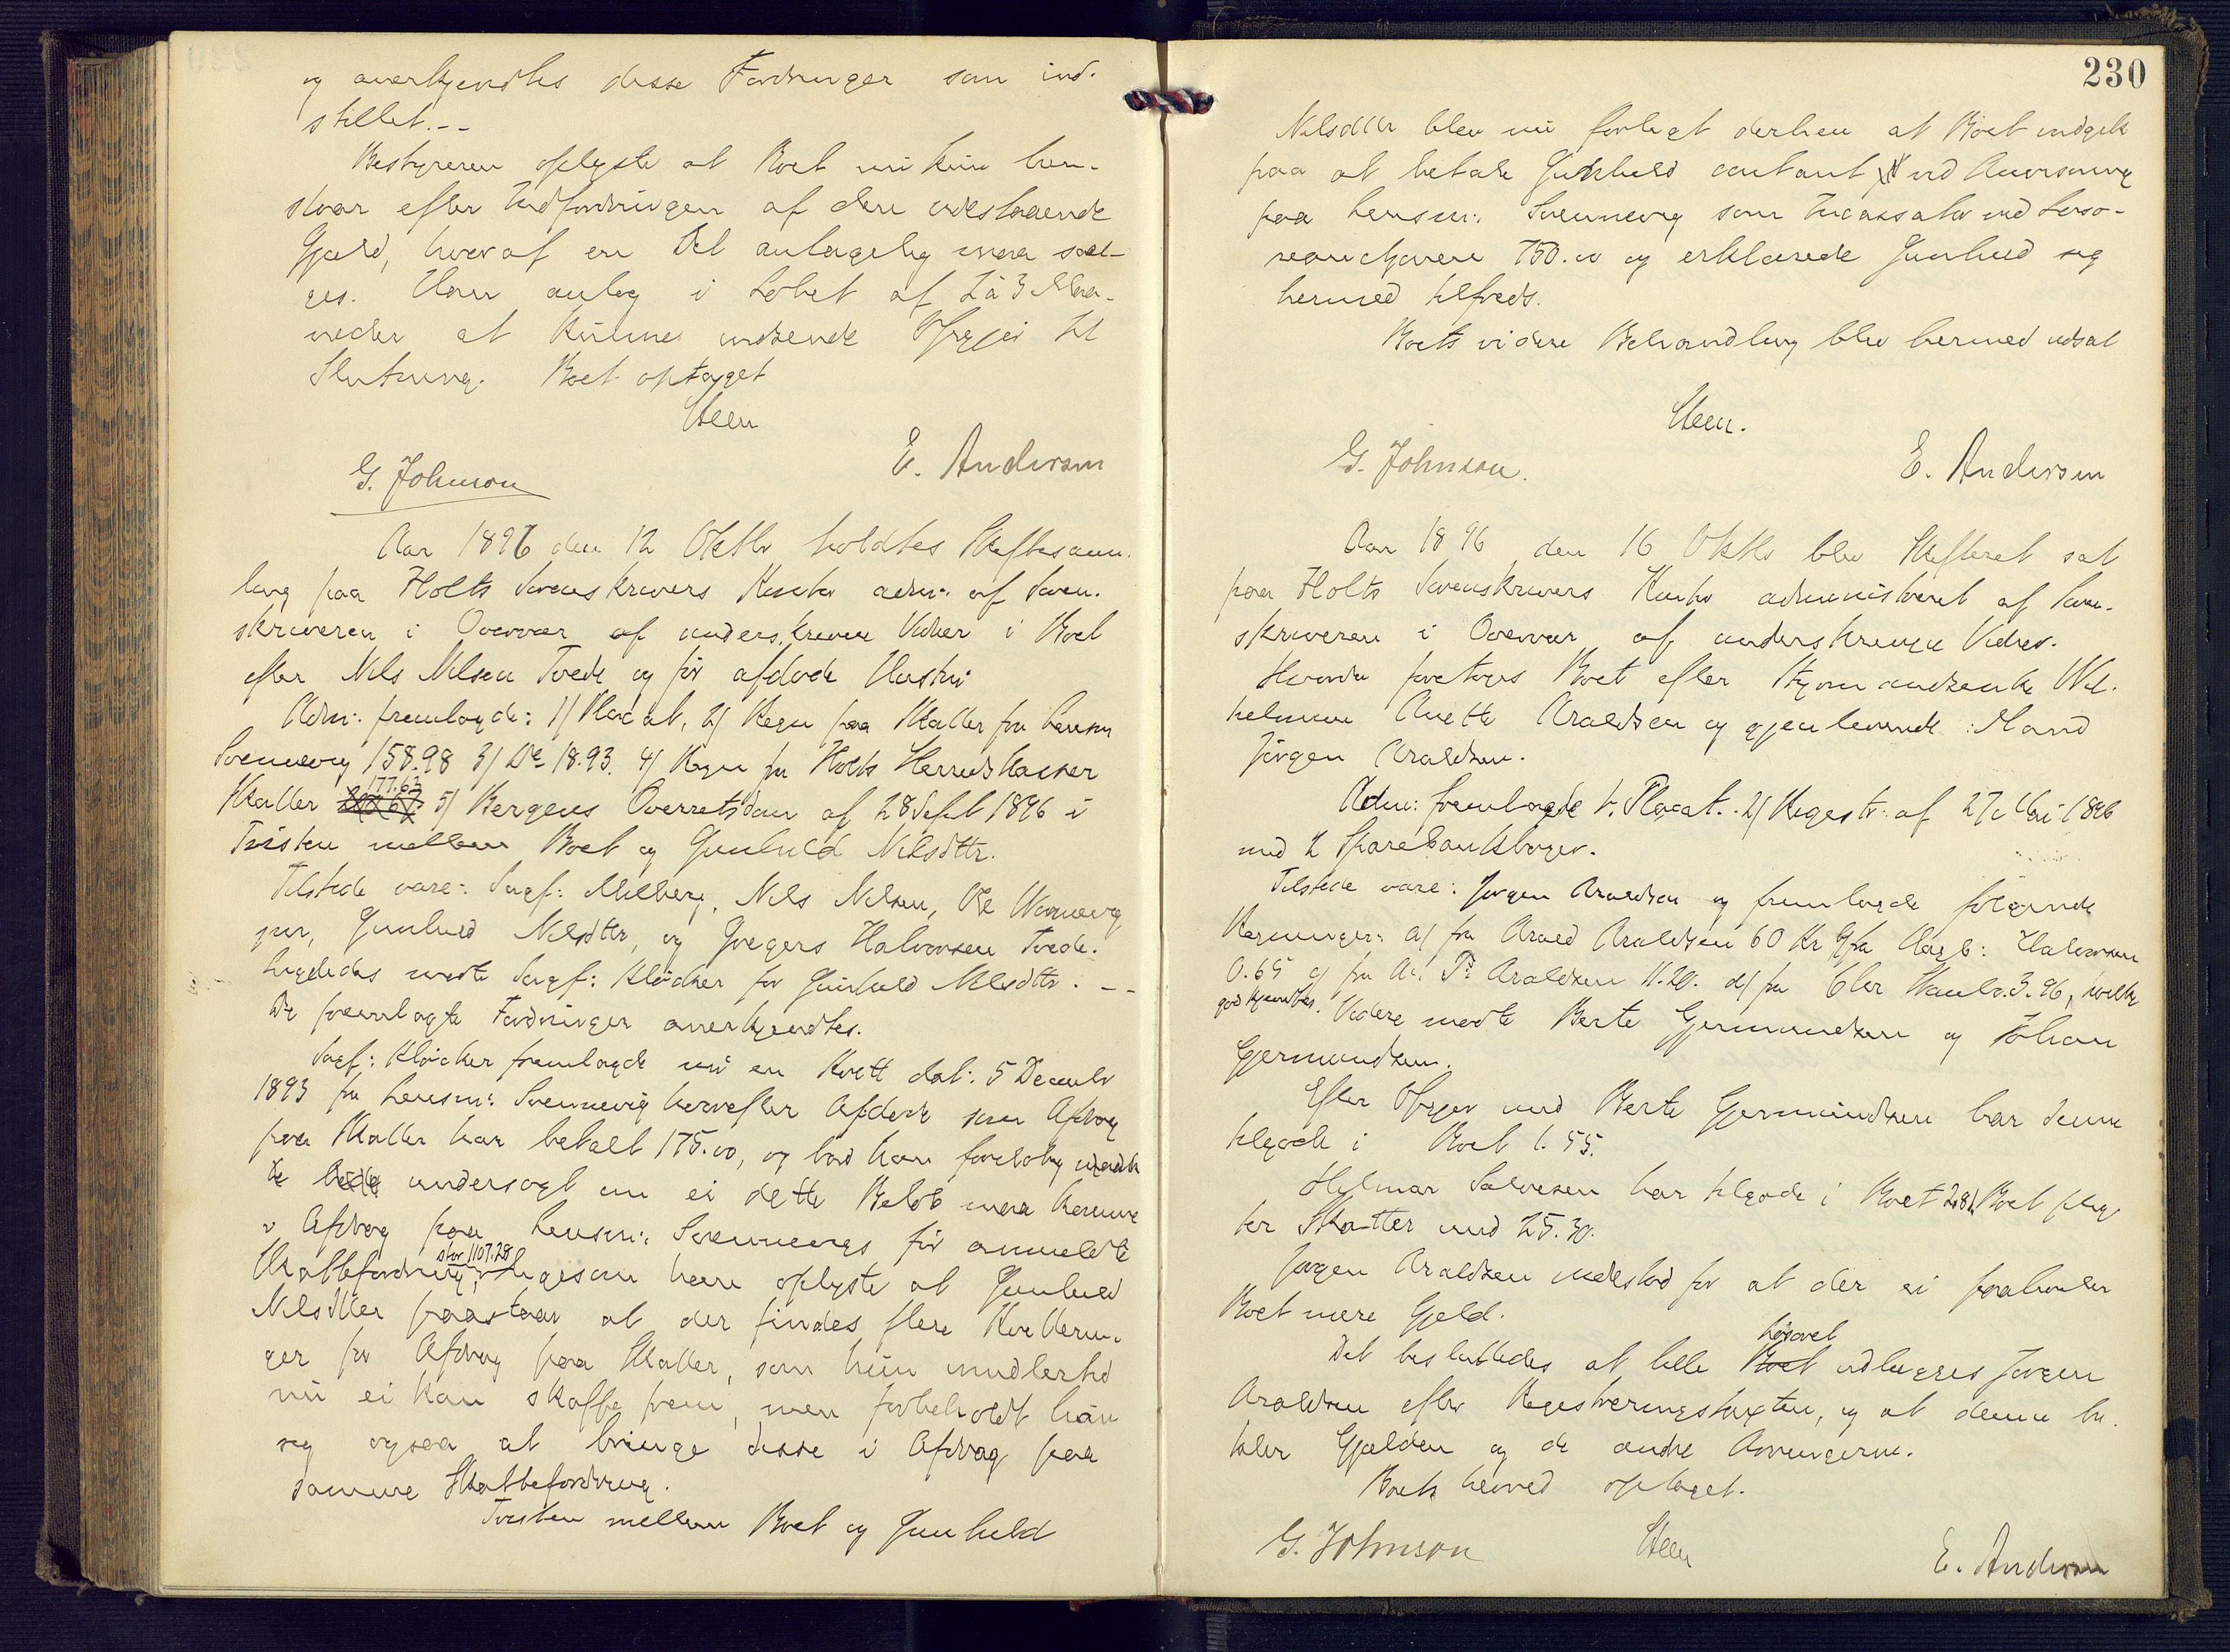 og anerkjendtes disse Fordringer som ind-
stillet.--
Bestyreren oplyste at Boet nu kun hen-
staar efter Indfordringen af den udestaaende
Gjæld, hvoraf en Del antagelig maa sæl-
ges. Han antog i Løbet af 2 à 3 Maa-
neder at kunne indsende Opgjør til
Slutning. Boet optaget
Steen
G. Johnson E. Andersen
Aar 1896 den 12 Oktbr holdtes Skiftesam-
ling paa Holts Sorenskrivers Kontor adm: af Soren-
skriveren i Overvær af underskrevne Vidner i Boet
efter Nils Nilsen Tvede og før afdøde Hustru
Adm: fremlagde: 1/ Placat, 2/ Regn paa Skatter fra Lensm
Svennevig 158.98 3/ Do 18.93. 4/ Regn fra Holts Herredskasser
Skatter 177.63 5/ Bergens Overretsdom af 28 Septb 1896 i
Tvisten mellem Boet og Gunhild Nilsdttr.
Tilstede vare: Sagf: Milberg, Nils Nilsen, Ole Wærnevig
jun, Gunhild Nilsdttr, og Gregers Halvorsen Tvede.
Ligeledes mødte Sagf: Kløcker for Gunhild Nilsdttr. --
De fremlagte Fordringer anerkjendtes.
Sagf: Kløcker fremlagde nu en Kvitt dat: 5 Decembr
1893 fra Lensm: Svennevig hvorefter Afdøde som Afdrag
paa Skatter har betalt 175.00, og bad han foreløbig
undersøgt om ei dette Beløb maa komme
i Afdrag paa Lensm: Svennevigs før anmeldte
Skattefordring, stor 1107.28 ligesom han oplyste at Gunhild
Nilsdtter paastaar at der findes flere Kvitterin-
ger for Afdrag paa Skatter, som hun imidlertid
nu ei kan skaffe frem, men forbeholdt hun
sig ogsaa at bringe disse i Afdrag paa
samme Skattefordring.
Tvisten mellem Boet og Gunhild
230
Nilsdttr blev nu forligt derhen at Boet indgik
paa at betale Gunhild contant ved Anvisning
paa Lensm: Svennevig som Incassator ved Løsø-
reauctionen 750.00 og erklærede Gunhild sig
hermed tilfreds.
Boets videre Behandling blev hermed udsat
Steen.
G. Johnson. E. Andersen
Aar 1896 den 16 Oktbr blev Skifteret sat
paa Holts Sorenskrivers Kontor administreret af Soren-
skriveren i Overvær af underskrevne Vidner.
Hvorda foretoges Boet efter Styrmandsenke Wil-
helmine Anette Araldsen og gjenlevende Mand
Jørgen Araldsen.
Adm: fremlagde 1. Placat. 2/ Registr: af 27 Mai 1896
med 2 Sparebankbøger.
Tilstede vare: Jørgen Araldsen og fremlagde følgende
Regninger: a/ fra Arald Araldsen 60 Kr b/ fra Aagb: Halvorsen
0.65 c/ fra A. T. Araldsen 11.20. d/ fra 3.96, hvilke
godkjendtes. Videre mødte Berte Gjermundsen og Johan
Gjermundsen.
Efter Opgjør med Berte Gjermundsen har denne
tilgode i Boet 1.55.
Hjelmar Salvesen har tilgode i Boet 2.81. Boet plig-
ter Skatter med 25.30.
Jørgen Araldsen indestod for at der ei paahviler
Boet mere Gjeld.
Det besluttedes at hele Løsøret udlægges Jørgen
Araldsen efter Registreringstaxten, og at denne be-
taler Gjælden og de andre Arvingerne.
Boets hermed optaget.
G. Johnson Steen E. Andersen